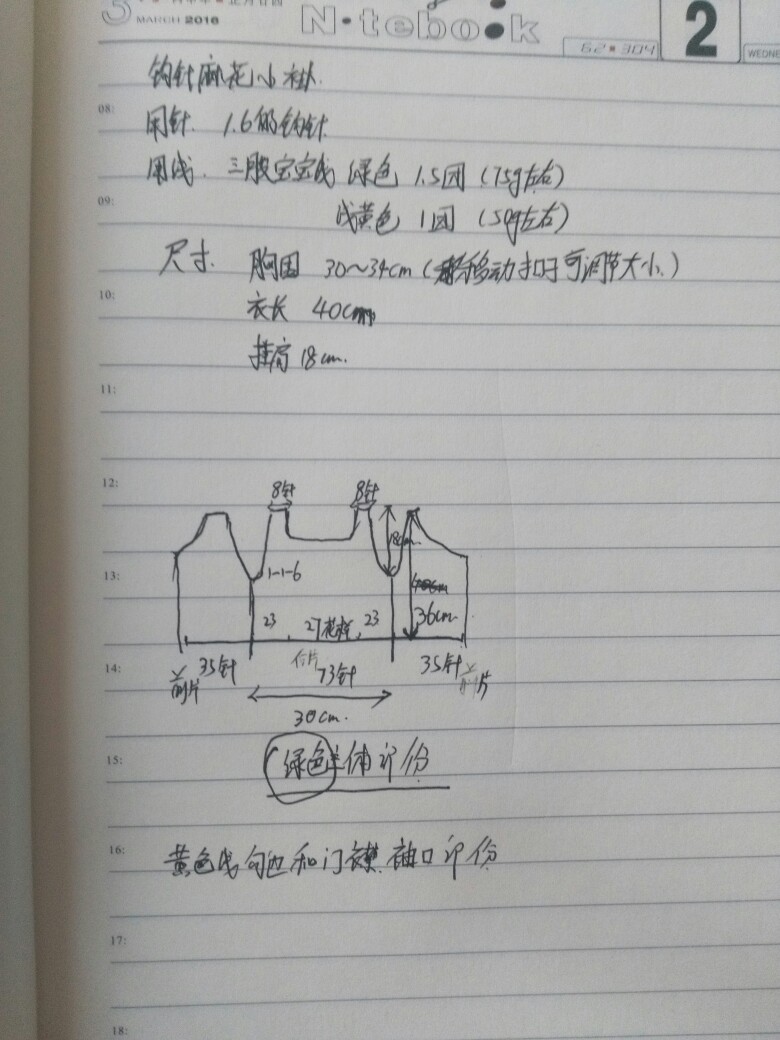 MARCH 2016
N·tebook
62 304
2
WEDNE
钩针麻花小褂.
08:
用针. 1.6的钩针
用线. 三股宝宝线 绿色 1.5团 (75g左右)
09:
浅黄色 1团 (50g左右)
尺寸. 胸围 30~34cm (移动扣子可调节大小.)
10:
衣长 40cm
挂肩 18cm.
11:
12:
8针 8针
18cm
13:
1-1-6
36cm
23 27花样 23
14:
35针 73针 35针
前片 片
30cm.
15:
绿色主体部份
16:
黄色线勾边和门襟 袖口部份
17:
18: